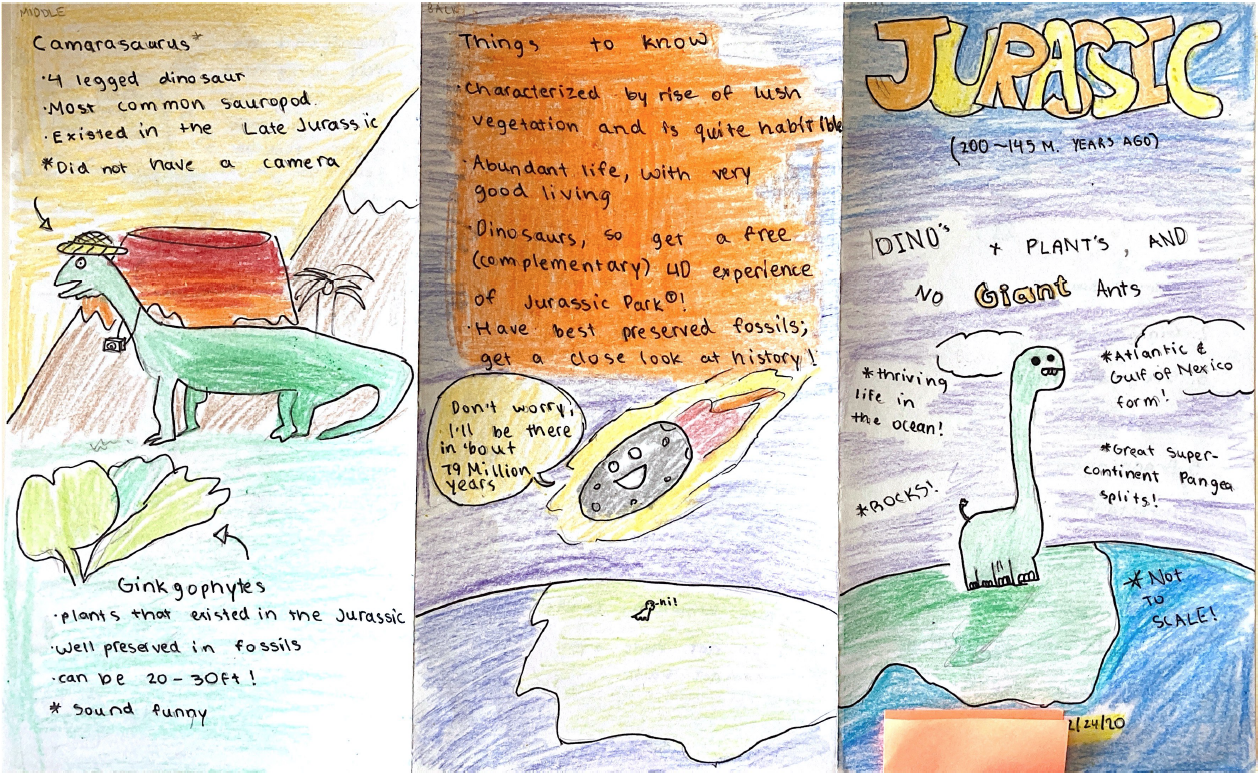 MIDDLE
Camarasaurus*
·4 legged dinosaur
·Most common sauropod.
·Existed in the Late Jurassic
*Did not have a camera
Ginkgophytes
·plants that existed in the Jurassic
·well preserved in fossils
·can be 20-30ft!
* Sound funny
BACK
Things to know
·Characterized by rise of lush
vegetation and is quite habitible
·Abundant life, with very
good living
·Dinosaurs, so get a free
(complementary) 4D experience
of Jurassic Park®!
·Have best preserved fossils;
get a close look at history!
Don't worry,
I'll be there
in 'bout
79 Million
years
-hi!
JURASSIC
(200~145 M. YEARS AGO)
DINO's + PLANT'S, AND
NO Giant Ants
*thriving
life in
the ocean!
*Atlantic &
Gulf of Mexico
form!
*ROCKS!
*Great super-
continent Pangea
splits!
*NOT
TO
SCALE!
2/24/20